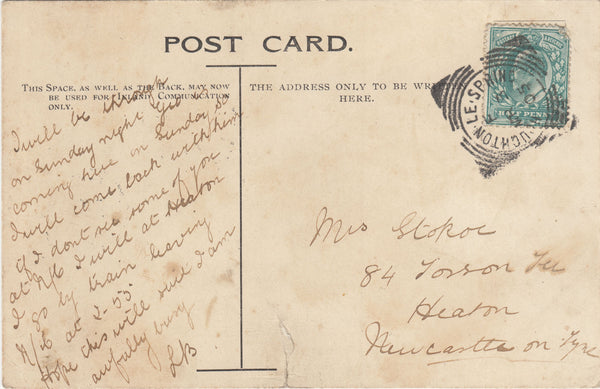 POST CARD.
THIS SPACE, AS WELL AS THE BACK, MAY NOW
BE USED FOR INLAND COMMUNICATION
ONLY.
THE ADDRESS ONLY TO BE WRITTEN
HERE.
I will be through
on Sunday night Geo is
coming here on Sunday so
I will come back with him
if I dont see some of you
at N/C I will at Heaton
I go by train leaving
N/C at 2-55.
Hope this will suit I am
awfully busy
LB
Mrs Stokoe
84 Tosson Ter
Heaton
Newcastle on Tyne
HALF PENNY
UGHTON-LE-SPRING